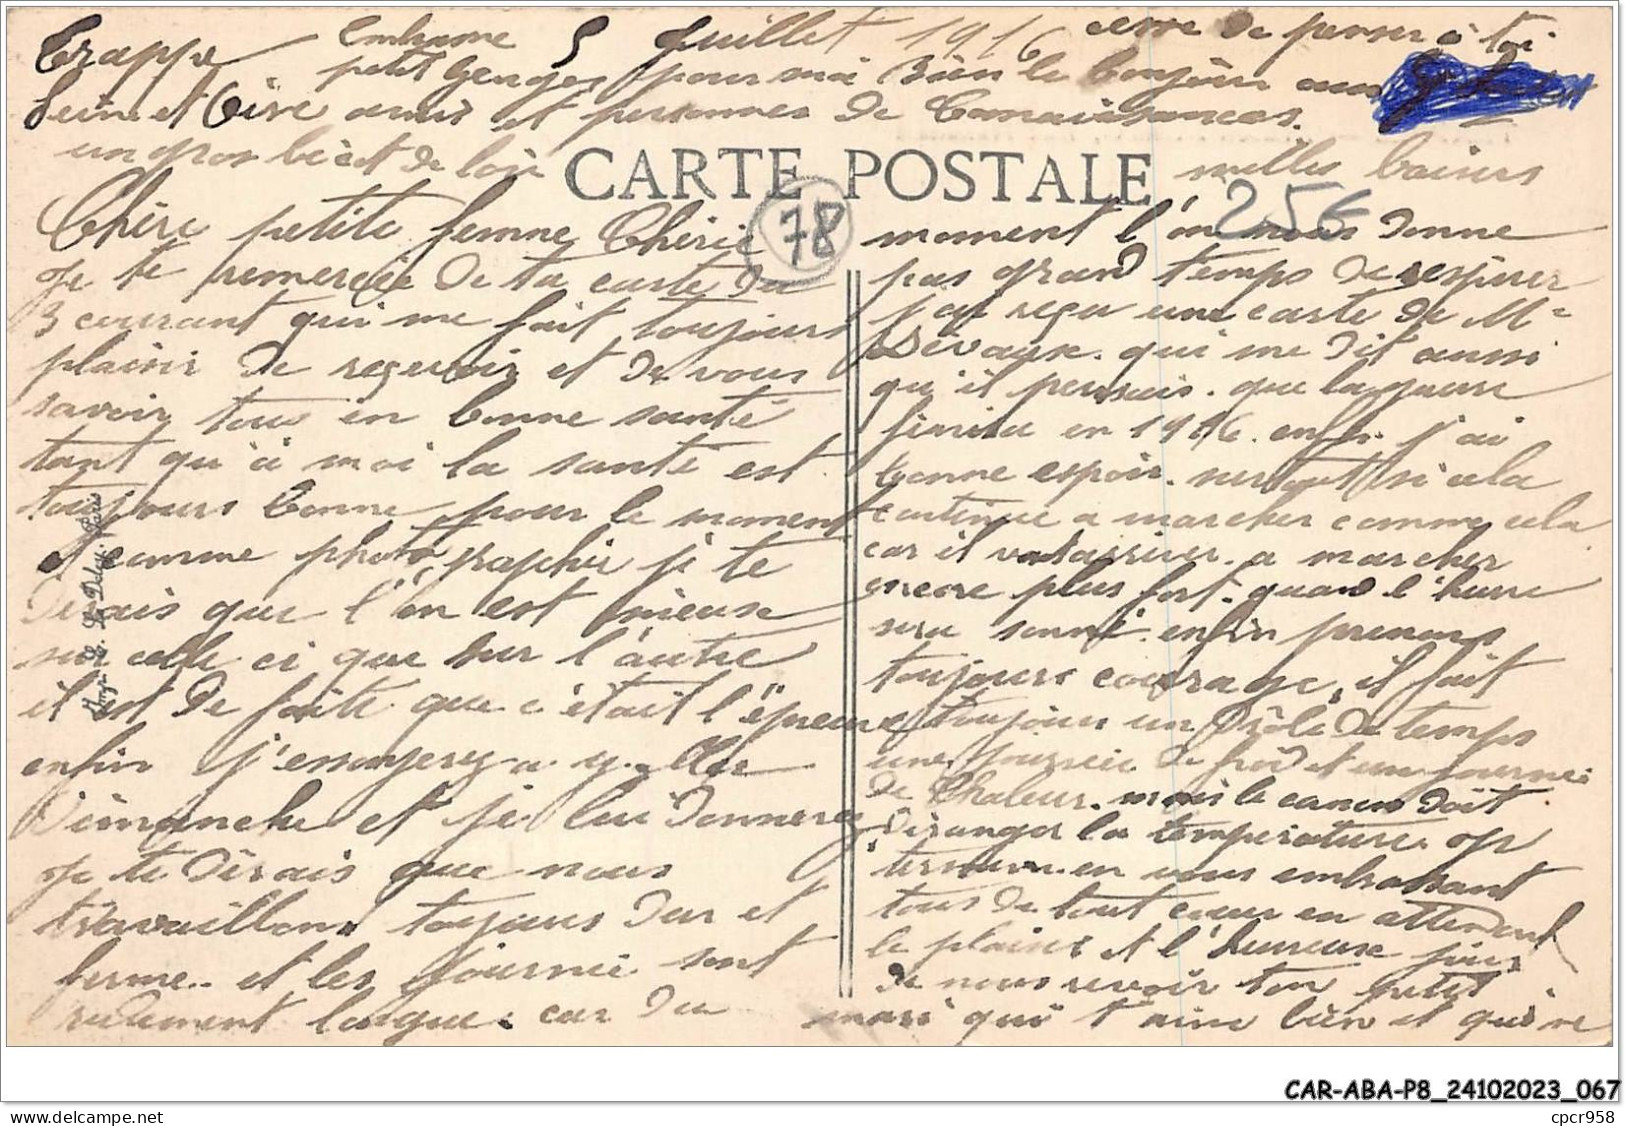 Trappe 5 Juillet 1916 cesse de penser à toi
Embrasse
petit Georges pour moi Bien le bonjour aux
Seine et Oise amis et personnes de Connaissances.
un gros bécot de loin
CARTE POSTALE
milles baisers
78
25€
Chère petite femme Chérie
Je te remercie de ta carte du
3 courant qui me fait toujours
plaisir de reçevoir et de vous
savoir tous en bonne santé
tant qu'à moi la santé est
toujours bonne pour le moment
et comme photographie je te
dirais que l'on est mieuse
sur celle ci que sur l'autre
il est de faite que c'était l'épreuve
enfin j'essayerez a y aller
Dimanche et je lui donnerez
Je te dirais que nous
travaillons toujours dur et
ferme.. et les journé sont
rulement longue. car du
moment l'on nous donne
pas grand temps de respirer
j'ai reçu une carte de Mr
Devaux. qui me dit aussi
qu'il pensais. que la guerre
finisse en 1916. enfin j'ai
bonne espoir. surtout si cela
continue a marcher comme cela
car il vont arriver. a marcher
encore plus fort. quand l'heure
sera sonné. enfin prenons
toujours courage, il fait
toujours un drôle de temps
une journée de froid et une journée
de Chaleur. mais le canon doit
déranger la température. Je
termine en vous embrassant
tous de tout cœur en attendant
le plaisir et l'heureuse jour
de nous revoir ton petit
mari qui t'aime bien et qui ne
CAR-ABA-P8_24102023_067
www.delcampe.net
cpcr958